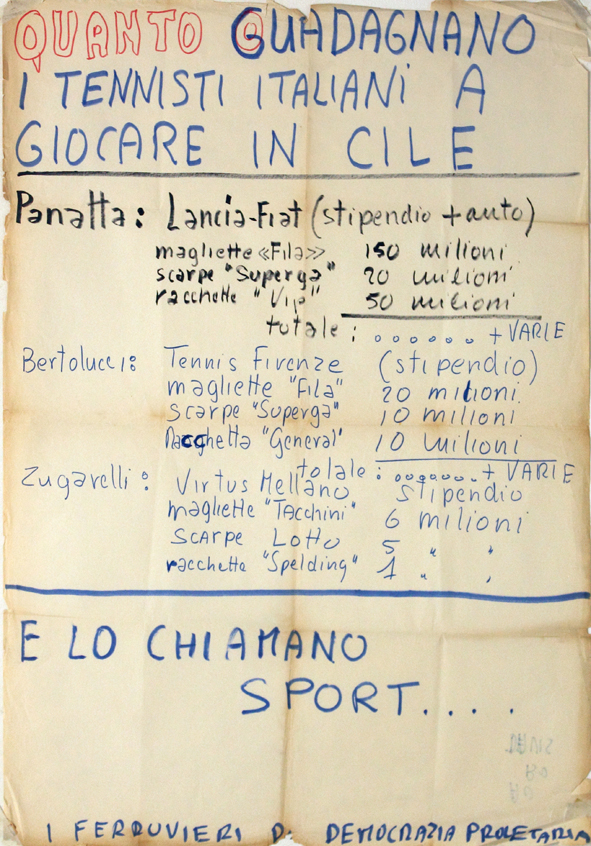 QUANTO GUADAGNANO
I TENNISTI ITALIANI A
GIOCARE IN CILE
Panatta: Lancia-Fiat (stipendio + auto)
magliette «Fila» 150 milioni
scarpe "Superga" 20 milioni
racchette "Vip" 50 milioni
totale: ...... + VARIE
Bertolucci: Tennis Firenze (stipendio)
magliette "Fila" 20 milioni
scarpe "Superga" 10 milioni
Racchetta "General" 10 milioni
totale: ....... + VARIE
Zugarelli: Virtus Mellano stipendio
magliette "Tacchini" 6 milioni
scarpe Lotto 5 " "
racchetta "Spelding" 1 " "
E LO CHIAMANO
SPORT....
I FERROVIERI DI DEMOCRAZIA PROLETARIA